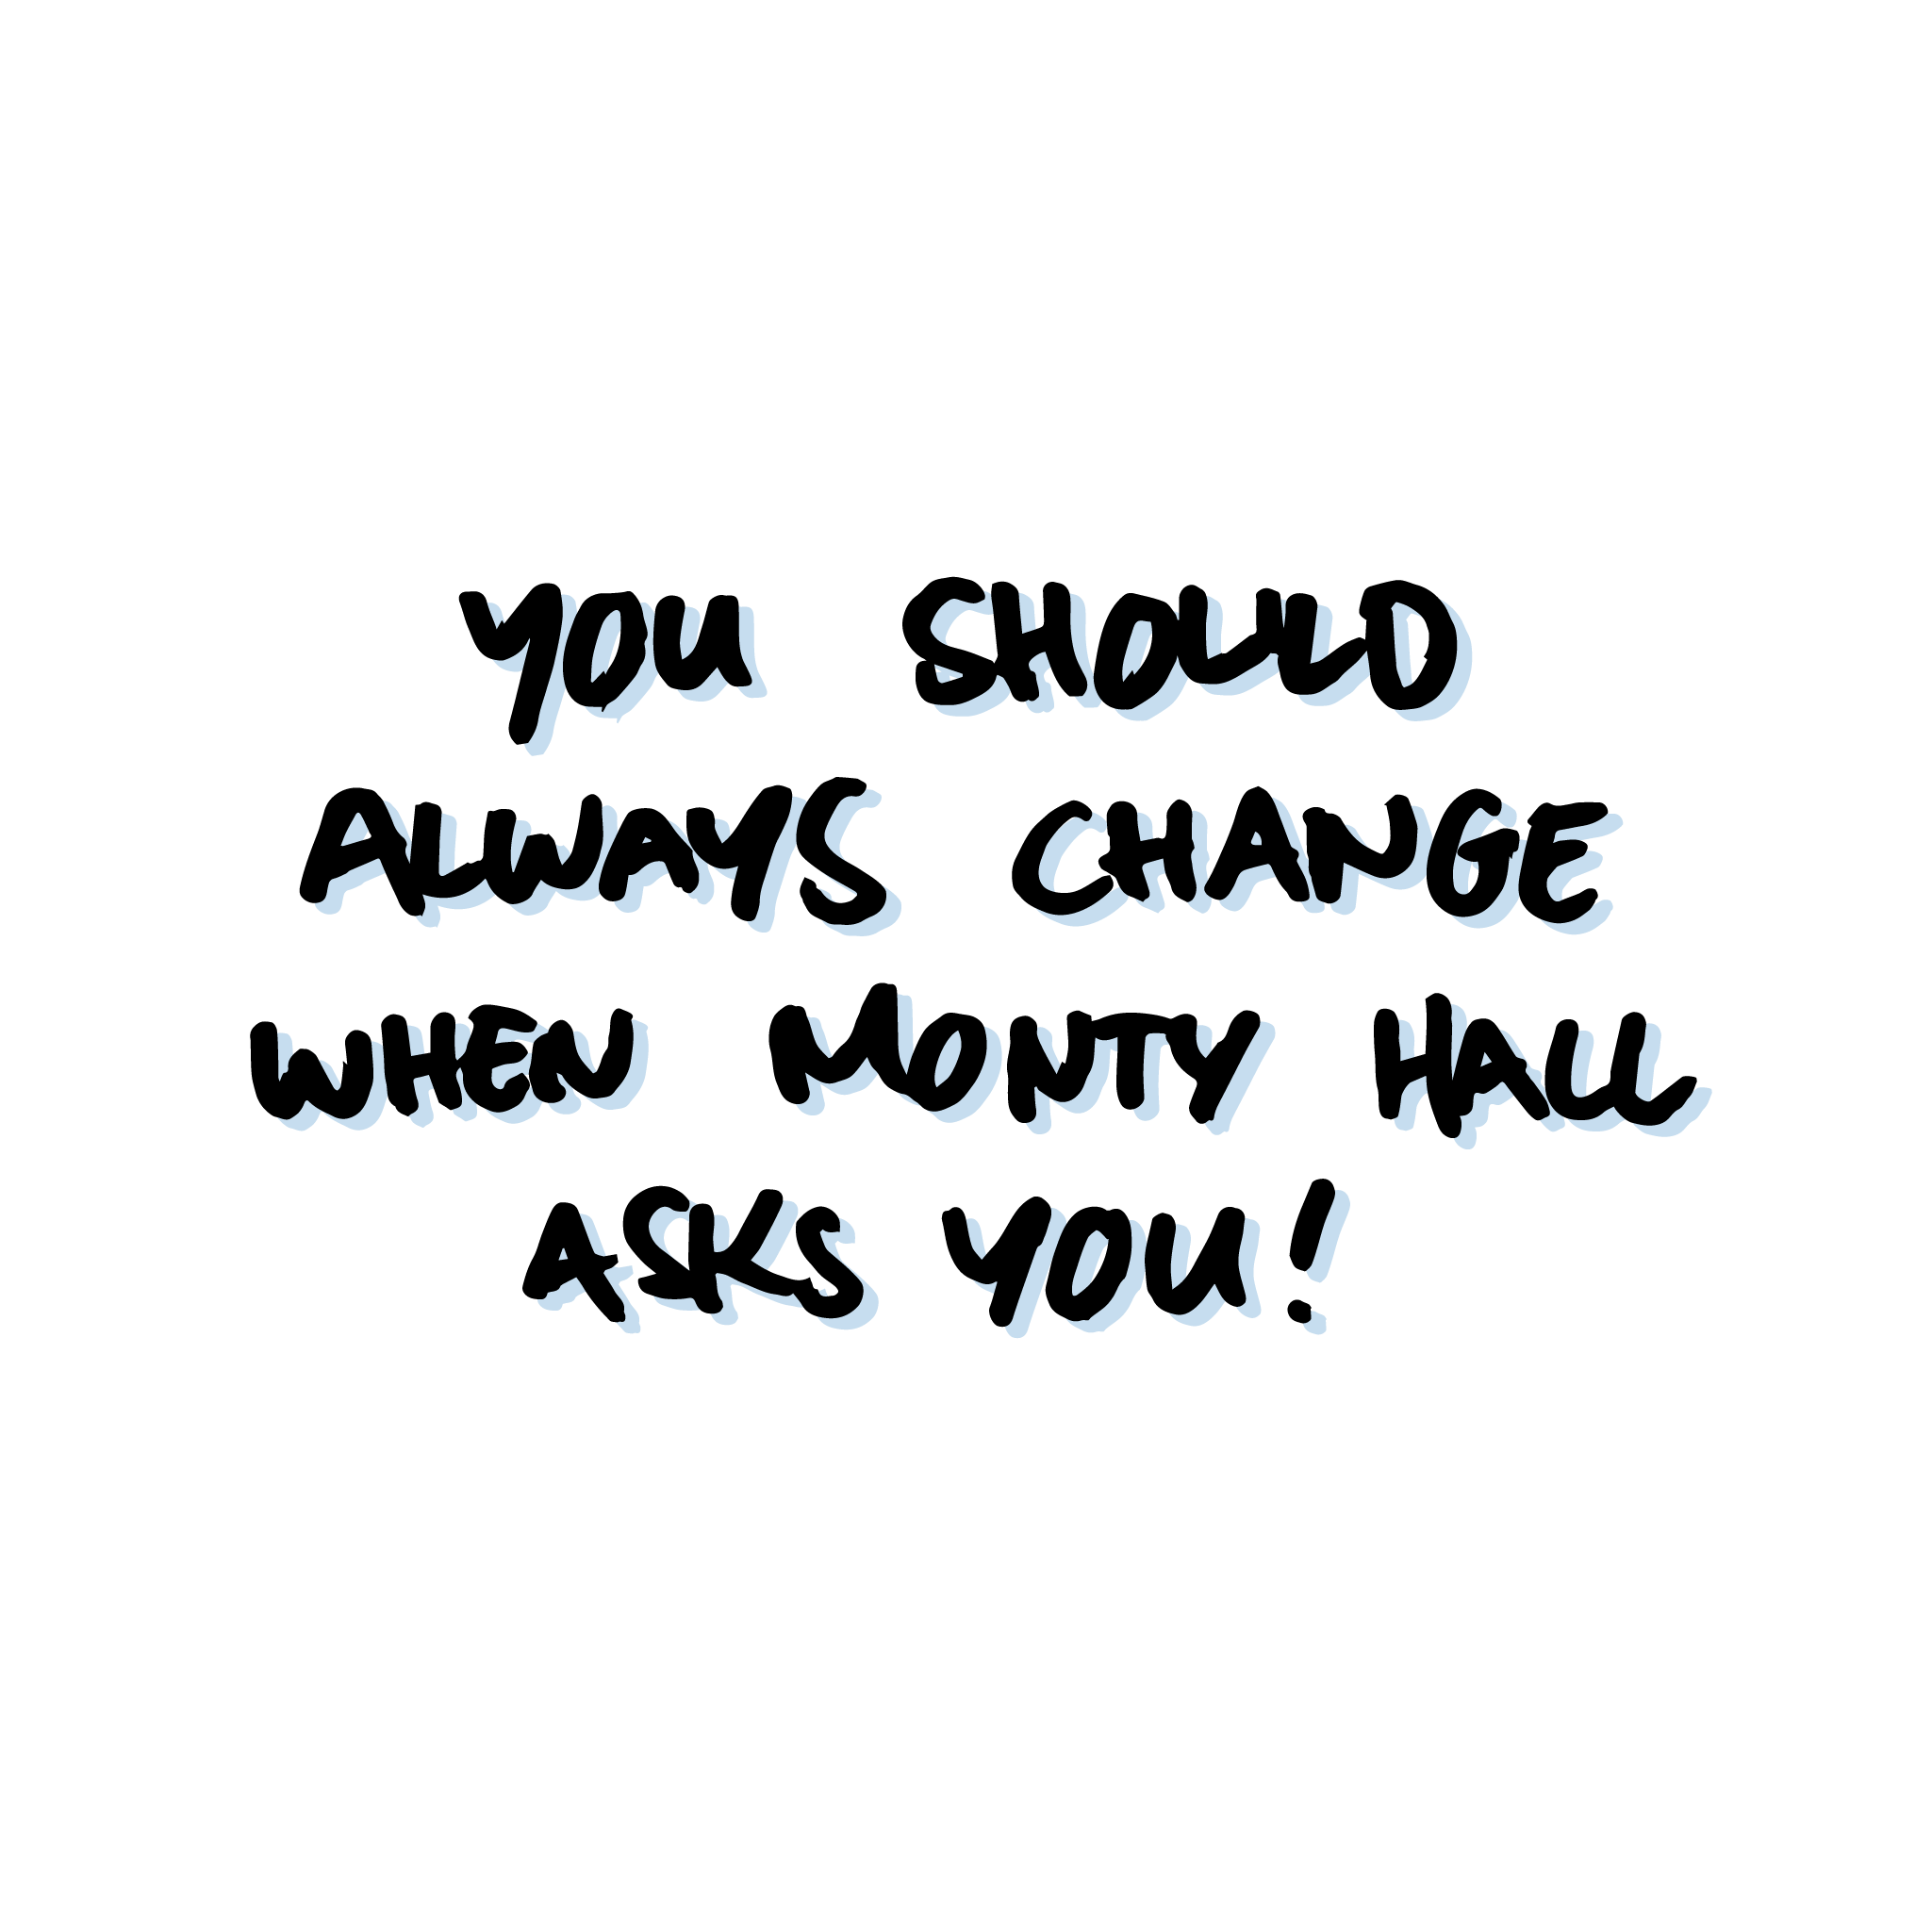 YOU SHOULD
ALWAYS CHANGE
WHEN MONTY HALL
ASKS YOU!